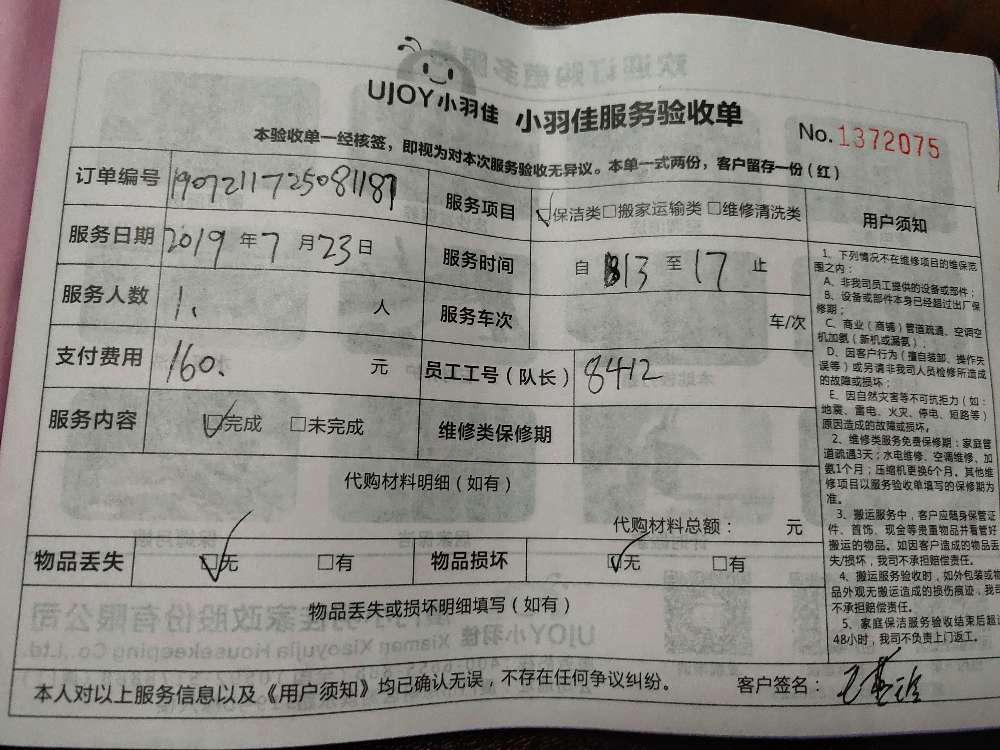 UJOY小羽佳 小羽佳服务验收单
No.1372075
本验收单一经核签，即视为对本次服务验收无异议。本单一式两份，客户留存一份（红）
订单编号 190721172508118 服务项目 ☑保洁类□搬家运输类□维修清洗类 用户须知
服务日期 2019年7月23日 服务时间 自 13 至 17 止
服务人数 1. 人 服务车次 车/次
支付费用 160. 元 员工工号（队长） 8412
服务内容 ☑完成 □未完成 维修类保修期
代购材料明细（如有）
代购材料总额： 元
物品丢失 ☑无 □有 物品损坏 ☑无 □有
物品丢失或损坏明细填写（如有）
1、下列情况不在维修项目的维保范
围之内：
A、非我司员工提供的设备或部件；
B、设备或部件本身已经超过出厂保
修期；
C、商业（商铺）管道疏通、空调空
机加氨（新机或漏氨）；
D、因客户行为（擅自装卸、操作失
误等）或另请非我司人员检修所造成
的故障或损坏；
E、因自然灾害等不可抗拒力（如：
地震、雷电、火灾、停电、短路等）
原因造成的故障或损坏。
2、维修类服务免费保修期：家庭管
道疏通3天；水电维修、空调维修、加
氨1个月；压缩机更换6个月。其他维
修项目以服务验收单填写的保修期为
准。
3、搬运服务中，客户应随身保管证
件、首饰、现金等贵重物品并看管好
搬运的物品。如因客户造成的物品丢
失/损坏，我司不承担赔偿责任。
4、搬运服务验收时，如外包装或物
品外观无搬运造成的损伤痕迹，我司
不承担赔偿责任。
5、家庭保洁服务验收结束后超过
48小时，我司不负责上门返工。
本人对以上服务信息以及《用户须知》均已确认无误，不存在任何争议纠纷。 客户签名：